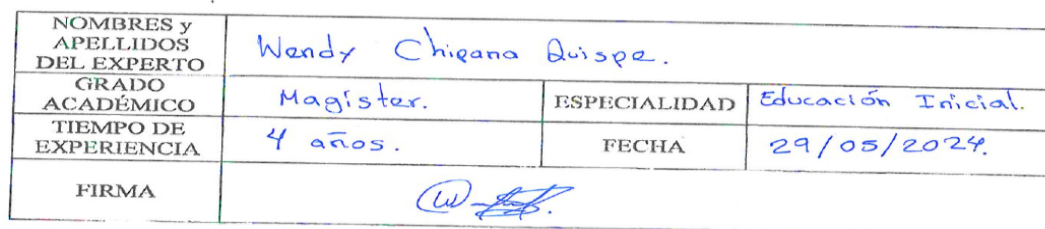 NOMBRES y
APELLIDOS
DEL EXPERTO
Wendy Chipana Quispe.
GRADO
ACADÉMICO
Magíster.
ESPECIALIDAD
Educación Inicial.
TIEMPO DE
EXPERIENCIA
4 años.
FECHA
29/05/2024.
FIRMA